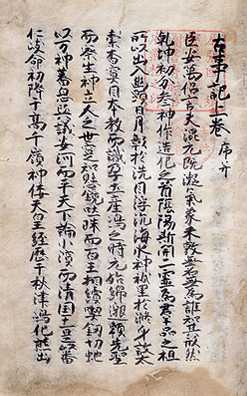 古事記上卷 序并
臣安萬侶言夫混元既凝氣象未效無名無爲誰知其形然
乾坤初分参神作造化之首陰陽斯開二靈爲群品之祖
所以出入幽顯日月彰於洗目浮沉海水神祇呈於滌身故太
素杳冥因本教而識孕土産嶋之時元始綿邈頼先聖
而察生神立人之世寔知懸鏡吐珠而百王相續喫釼切蛇
以万神蕃息歟議安河而平天下論小濱而清國土是以番
仁岐命初降于高千嶺神倭天皇經歴于秋津嶋化熊出